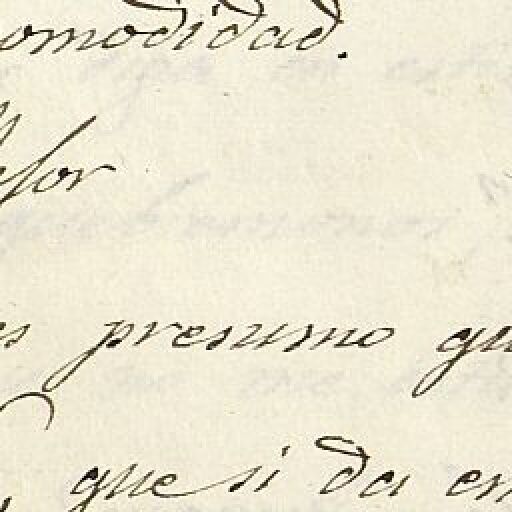 omodidad.
esor
es presumo qu
que si da en